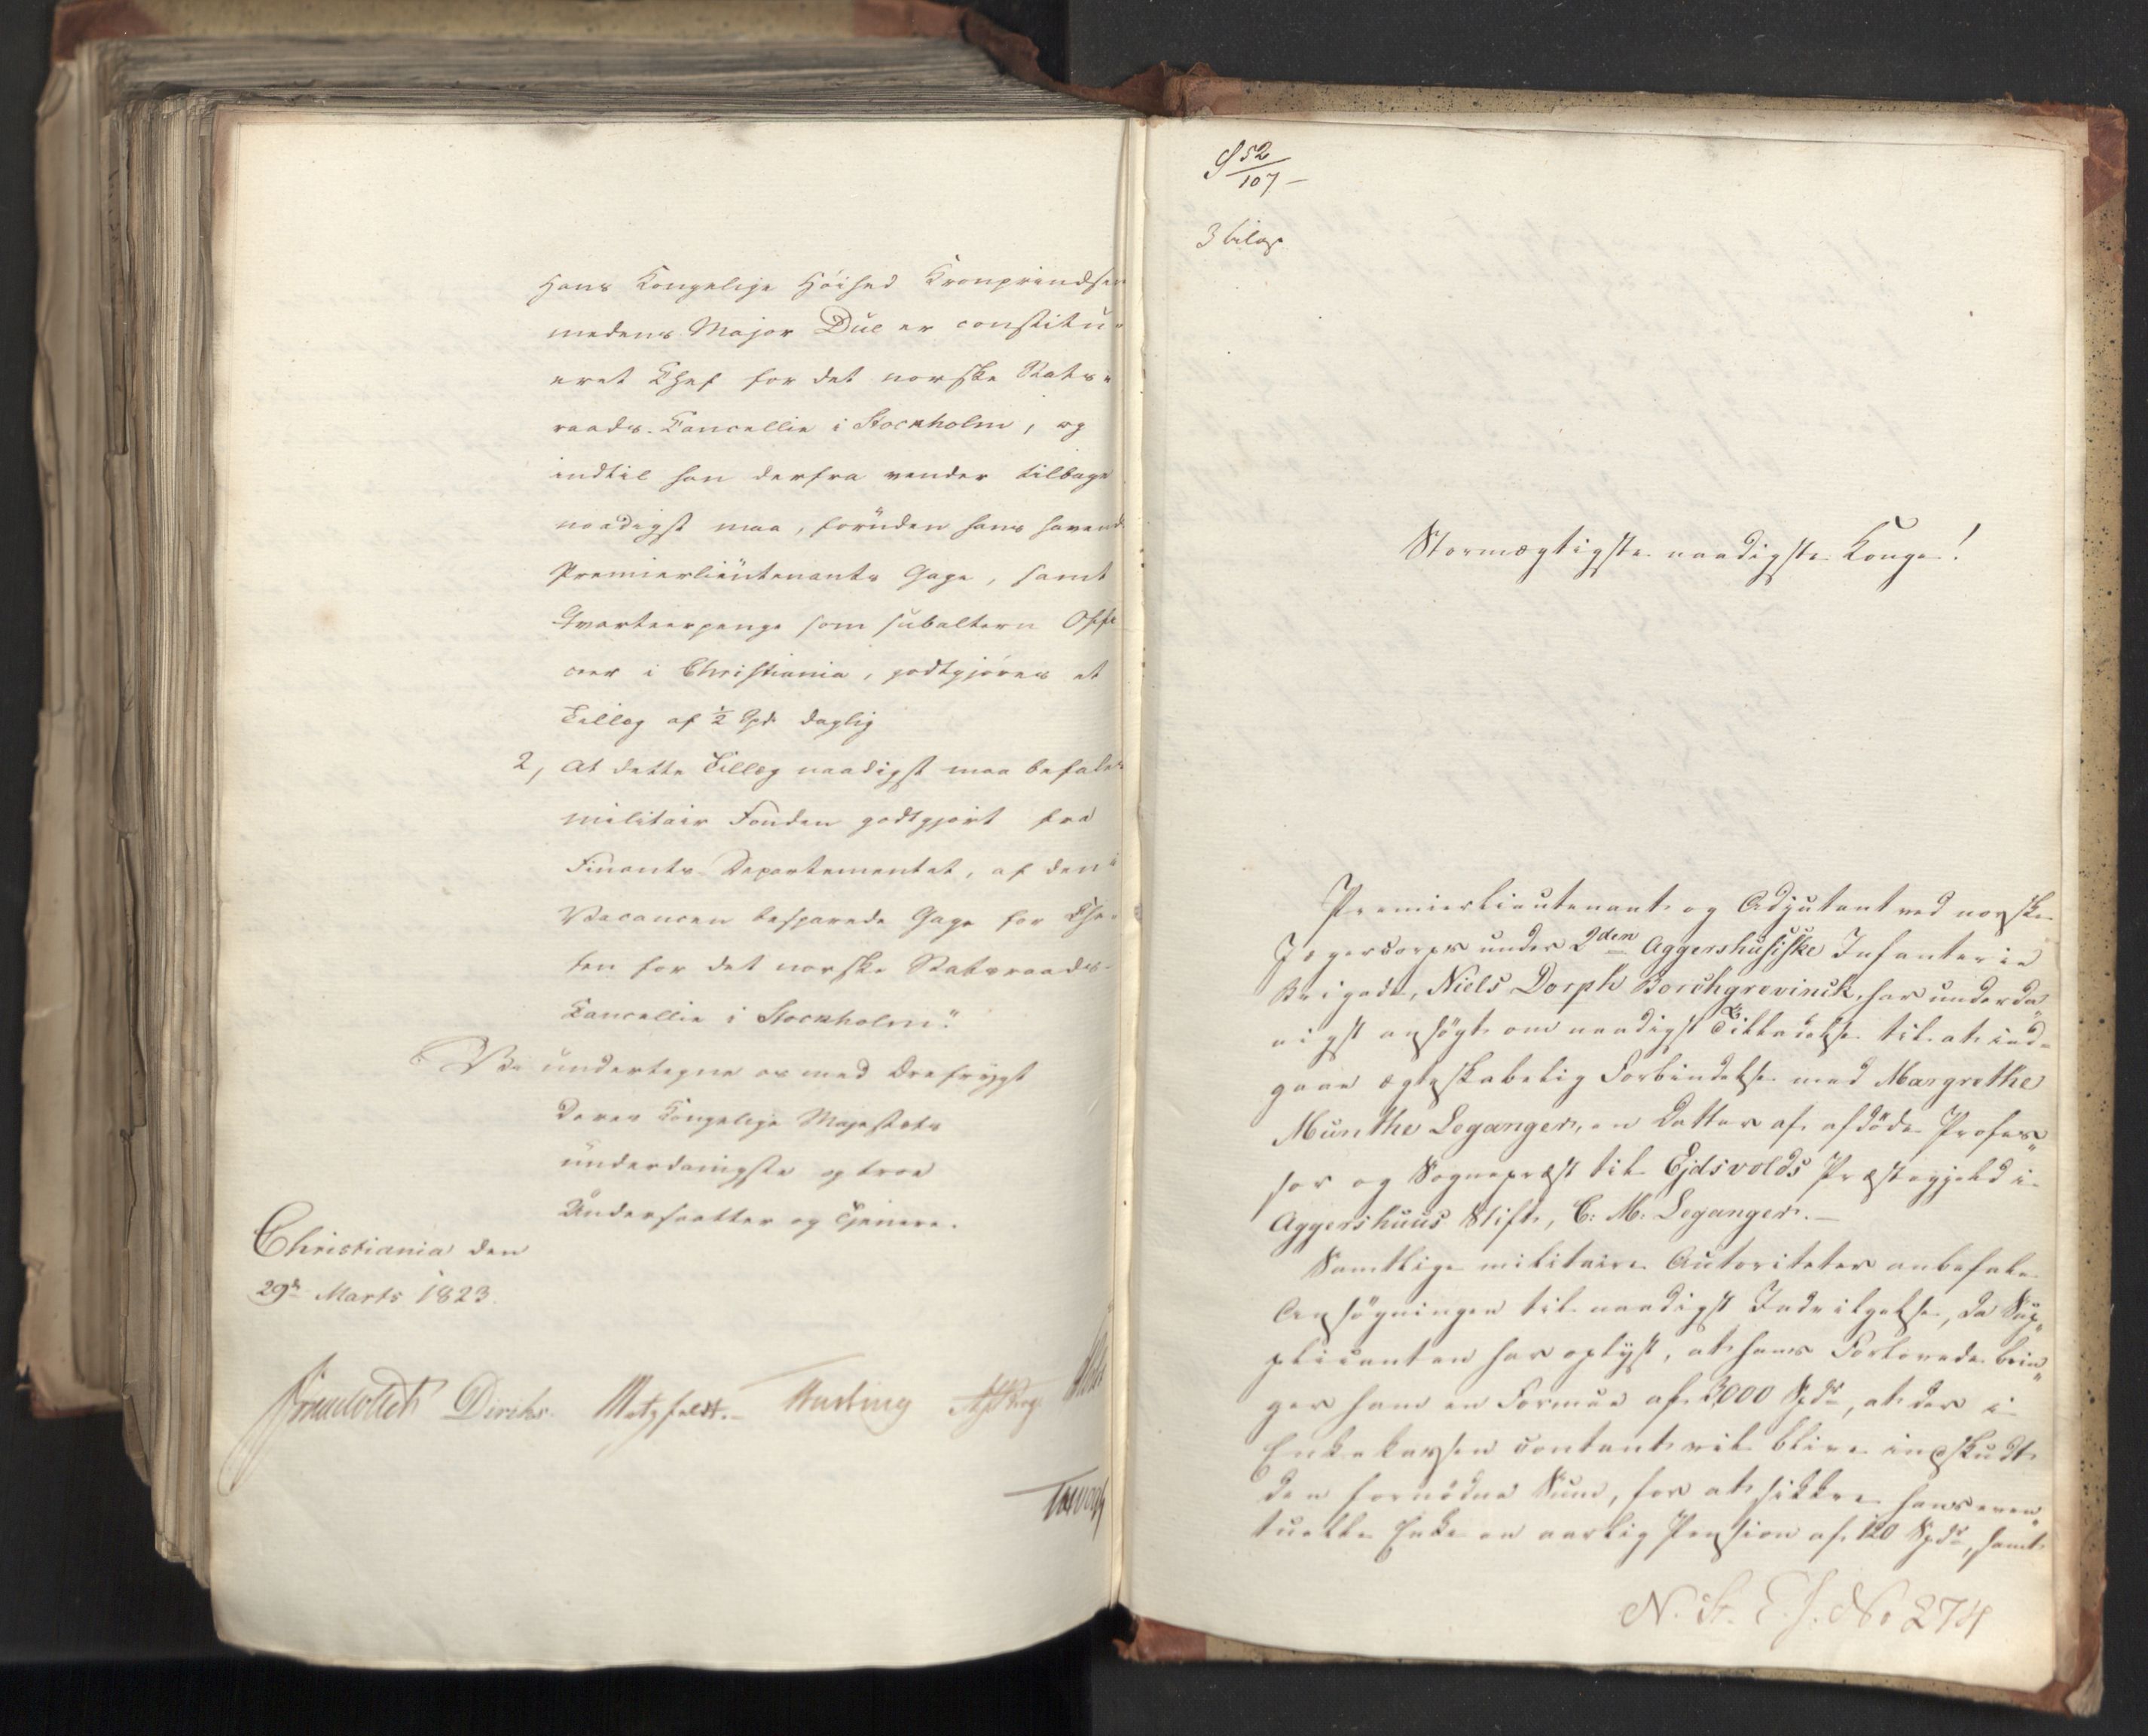 Hans Kongelige Höihed Kronprindsen
medens Major Due er constitu-
eret Chef for det norske Stats-
raads-Cancellie i Stockholm, og
indtil han derfra vender tilbage
naadigst maa, foruden hans havende
Premierlieutenants Gage, samt
Qvarteerpenge som subaltern Offi-
ceer i Christiania, godtgjöres et
Tillæg af ½ Spd. daglig
2, At dette Tillæg naadigst maa befales
militair Fonden godtgjort fra
Finants-Departementet, af den i
Vacancen besparede Gage for Che-
fen for det norske Statsraads-
Cancellie i Stockholm."
Vi undertegne os med Ærefrygt
Deres Kongelige Majestæts
underdanigste og troe
Undersaatter og Tjenere.
Christiania den
29de Marts 1823.
Diriks. Motzfeldt.
S 52/107 -
3 bilag
Stormægtigste naadigste Konge!
Premierlieutenant og Adjutant ved norske
Jægercorps under 2den Aggershusiske Infanterie
Brigade, Niels Dorph Borchgrevinck, har underda"
nigst ansögt om naadigst Tilladelse til at ind-
gaae ægteskabelig Forbindelse med Margrethe
Munthe Leganger, en Datter af afdöde Profes"
sor og Sognepræst til Ejdsvolds Præstegjeld i
Aggershuus Stift, C: M: Leganger. —
Samtlige militaire Autoriteter anbefale
Ansögningen til naadigst Indvilgelse, da Sup"
plicanten har oplyst, at hans Forlovede brin"
ger ham en Formue af 3000 Spdr, at der i
Enkekassen contant vil blive indskudt
den fornödne Sum, for at sikkre hans even"
tuelle Enke en aarlig Pension af 120 Spdr, samt
N. St. E. J. No 274